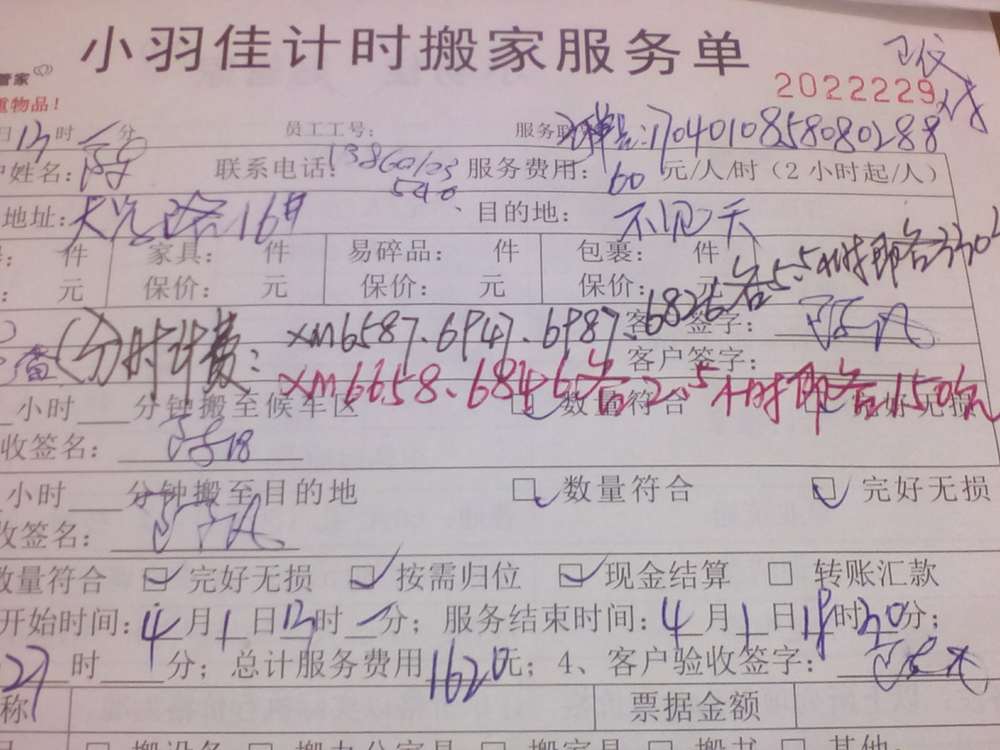 小羽佳计时搬家服务单
管家
重物品！
2022229
日13时 分 员工工号： 服务联 1704010858080288
户姓名： 联系电话：13860123540 服务费用：60元/人/时（2小时起/人）
地址： 路16# 目的地：
件 家具： 件 易碎品： 件 包裹： 件
元 保价： 元 保价： 元 保价： 元
各5.5小时即各330
(分)时计费：XM6587、6947、6987、6826
客 签字：
查 客户签字：
XM6658、6846各2.5小时即各150元
小时 分钟搬至候车区 数量符合 完好无损
收签名：
小时 分钟搬至目的地 数量符合 完好无损
收签名：
数量符合 完好无损 按需归位 现金结算 转账汇款
开始时间：4月1日13时 分；服务结束时间：4月1日18时30分；
27时 分；总计服务费用1620元；4、客户验收签字：
称 票据金额
搬设备 搬办公家具 搬家具 搬书 其他